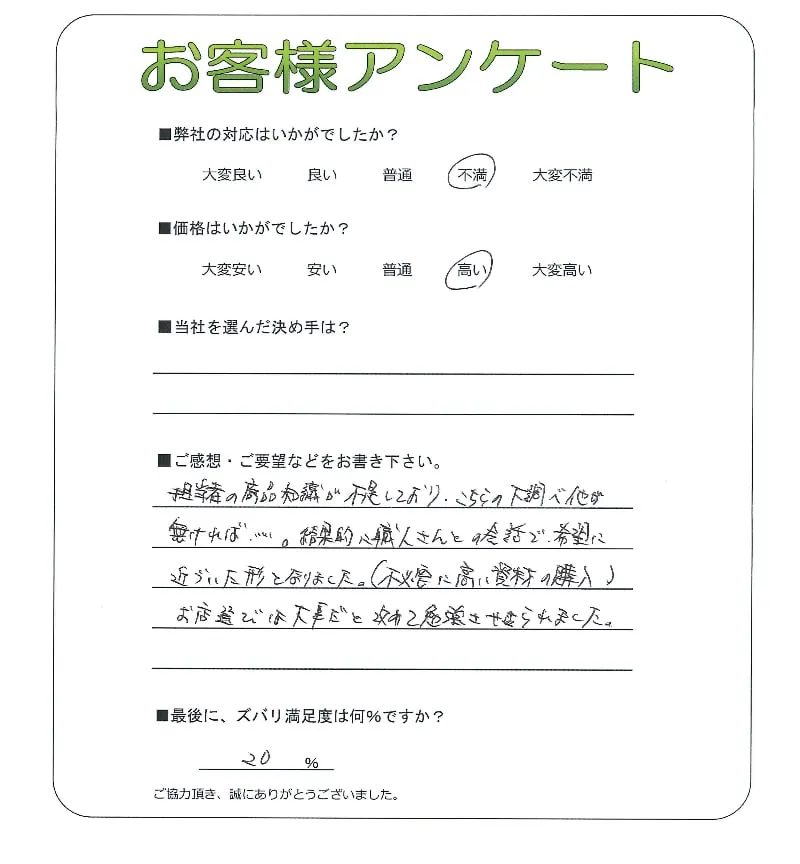 お客様アンケート
■弊社の対応はいかがでしたか？
大変良い 良い 普通 不満 大変不満
■価格はいかがでしたか？
大変安い 安い 普通 高い 大変高い
■当社を選んだ決め手は？
■ご感想・ご要望などをお書き下さい。
担当者の商品知識が不足しており、こちらの下調べ他が
無ければ……。結果的に職人さんとの会話で、希望に
近づいた形となりました。(不必要に高い資材の購入)
お店選びは大事だと改めて勉強させられました。
■最後に、ズバリ満足度は何％ですか？
20 ％
ご協力頂き、誠にありがとうございました。